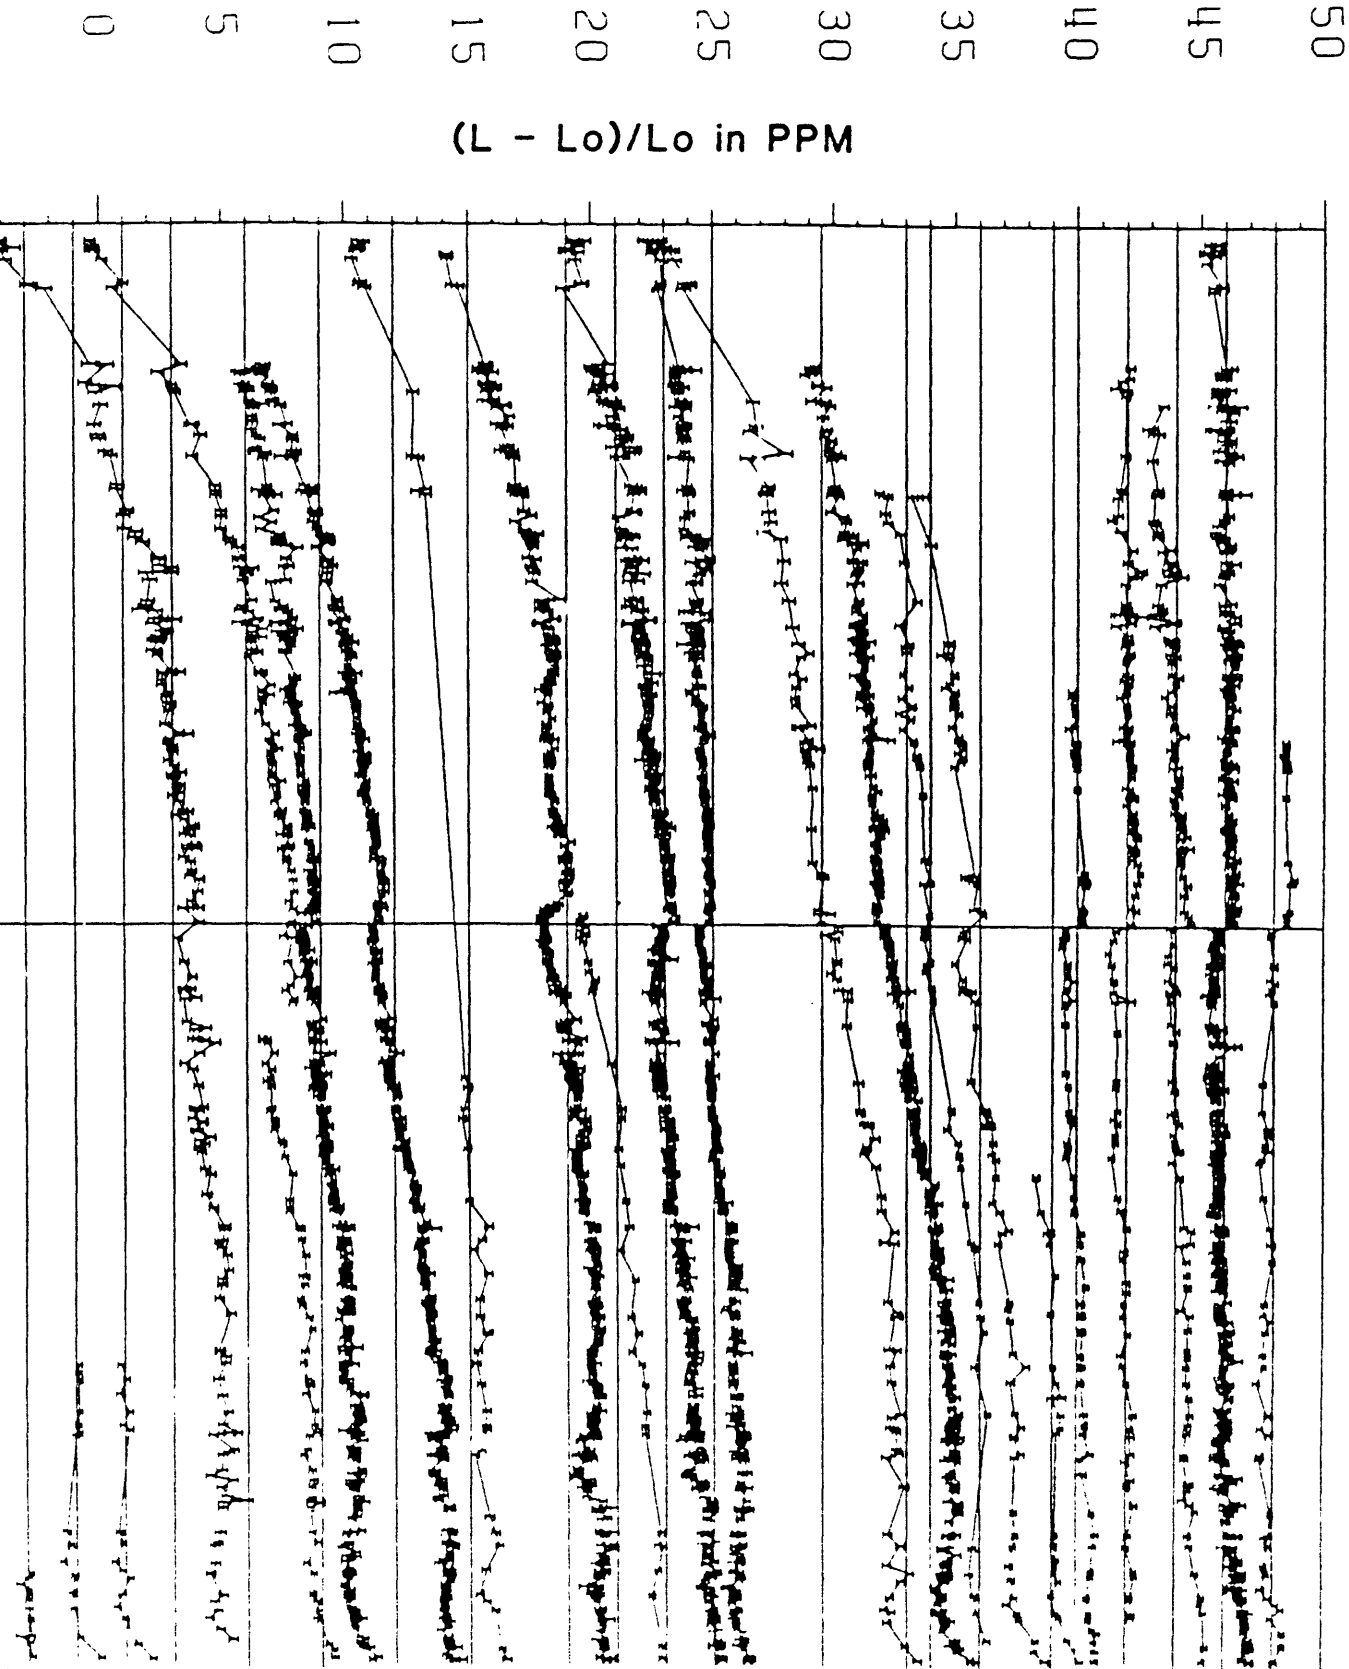 0 5 10 15 20 25 30 35 40 45 50
(L - Lo)/Lo in PPM